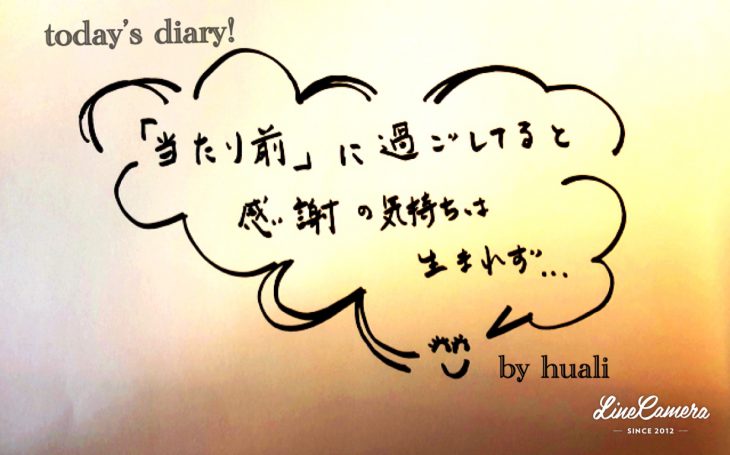 today's diary!
「当たり前」に過ごしてると
感謝の気持ちは
生まれず...
by huali
LineCamera
SINCE 2012